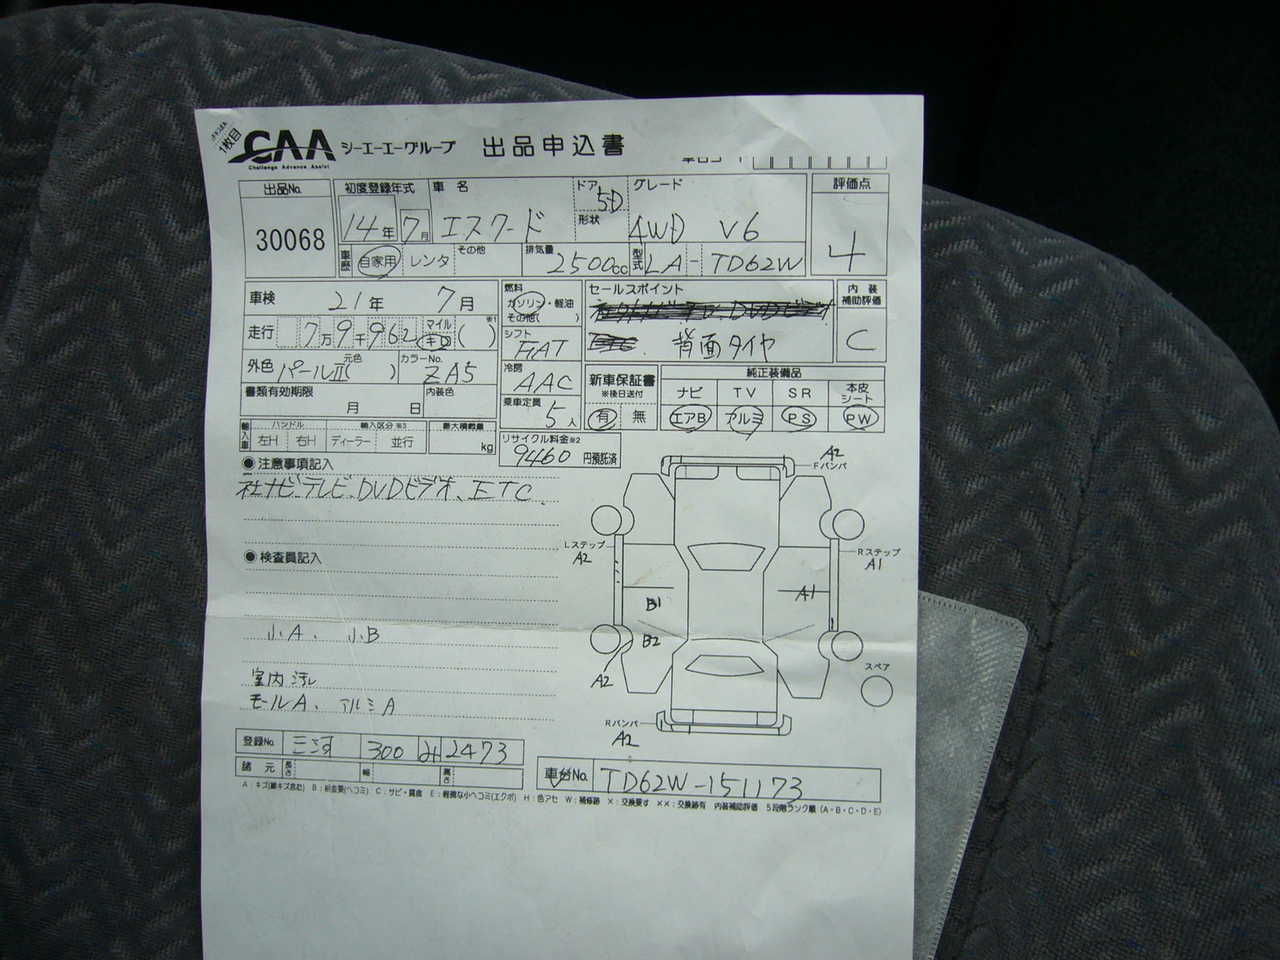 1枚目
CAA シーエーエーグループ 出品申込書
Challenge Advance Assist
出品No. 初度登録年式 車名 ドア 5D グレード 評価点
30068 14年 7月 エスクード 形状 4WD V6 4
車歴 自家用 レンタ その他 排気量 2500cc 型式 LA-TD62W
車検 21年 7月 燃料 ガソリン・軽油 その他( ) セールスポイント 内装補助評価
走行 7万9千962 マイル キロ ( )※1 シフト FAT 背面タイヤ C
外色 パールII 元色( ) カラーNo. ZA5 冷房 AAC 新車保証書 ※後日送付 純正装備品
書類有効期限 月 日 内装色 乗車定員 5人 有 無 ナビ TV SR 本皮シート
エアB アルミ PS PW
輸入車 ハンドル 左H 右H 輸入区分※3 ディーラー 並行 最大積載量 kg リサイクル料金※2 9460 円預託済
●注意事項記入
社ナビ、テレビ、DVDビデオ、ETC、
A2 Fバンパ
Lステップ A2
Rステップ A1
●検査員記入
B1 A1
小A、小B
B2
A2
スペア
室内汚レ
モールA、アルミA
Rバンパ A2
登録No. 三河 300 み 2473
諸元 長さ 幅 高さ 車台No. TD62W-151173
A：キズ(線キズ含む) B：板金要(ヘコミ) C：サビ・腐食 E：軽微な小ヘコミ(エクボ) H：色アセ W：補修跡 X：交換要す XX：交換跡有 内装補助評価 5段階ランク順（A・B・C・D・E）